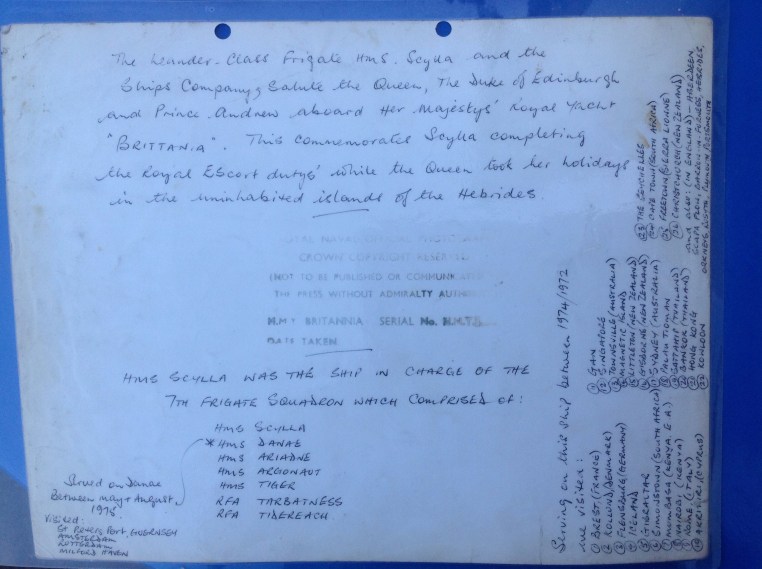 The Leander-Class Frigate Hms. Scylla and the
Ships Company, Salute the Queen, The Duke of Edinburgh
and Prince Andrew aboard Her Majestys' Royal Yacht
"BRITTANIA". This commemorates Scylla completing
the Royal Escort dutys' while the Queen took her holidays
in the uninhabited islands of the Hebrides.
CROWN COPYRIGHT RESERVED
(NOT TO BE PUBLISHED OR COMMUNICATED
THE PRESS WITHOUT ADMIRALTY
H.M.Y BRITANNIA SERIAL No.
DATE TAKEN
HMS SCYLLA WAS THE SHIP IN CHARGE OF THE
7TH FRIGATE SQUADRON WHICH COMPRISED OF:
HMS SCYLLA
* HMS DANAE
HMS ARIADNE
HMS ARGONAUT
HMS TIGER
RFA TARBATNESS
RFA TIDEREACH
Served on Danae
Between may + August
1975
Visited:
St Peters Port, GUERNSEY
AMSTERDAM
ROTTERDAM
MILFORD HAVEN
Serving on this ship between 1974/1972
we visited:
① BREST, (FRANCE)
② (DENMARK)
③ FLENSBURG (GERMANY)
④ ICELAND
⑤ GIBRALTAR
⑥ SIMONSTOWN (SOUTH AFRICA)
⑦ MOMBASA (KENYA. E. A.)
⑧ NAIROBI, (KENYA)
⑨ ROME. (ITALY)
⑩ AKROTIRI (CYPRUS)
⑪ GAN
⑫ SINGAPORE
⑬ TOWNSVILLE (AUSTRALIA)
⑭ MAGNETIC ISLAND
⑮ LITTLETON (NEW ZEALAND)
⑯ GISBORNE (NEW ZEALAND)
⑰ SYDNEY (AUSTRALIA)
⑱ PALAU TIOMAN
⑲ SATTAHIP (THAILAND)
⑳ BANKOK (THAILAND)
㉑ HONG KONG
㉒ KOWLOON
㉓ THE SEYCHELLES
㉔ CAPE TOWN (SOUTH AFRICA)
㉕ FREETOWN (SIERRA LIONNE)
㉖ CHRISTCHURCH (NEW ZEALAND)
and also: (IN ENGLAND) - ABERDEEN
SCAPA FLOW, BARROW IN FURNESS, HEBRIDES,
ORKNEYS, ROSYTH, PLYMOUTH PORTSMOUTH